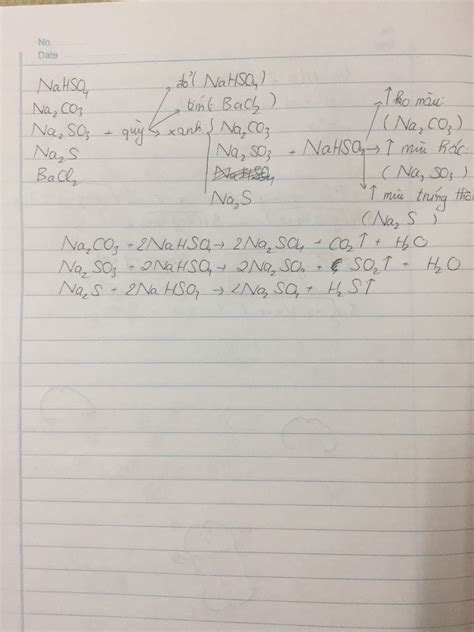 No.
Date
NaHSO4
Na2CO3
Na2SO3 + quỳ
Na2S
BaCl2
đỏ (NaHSO4)
tím (BaCl2)
xanh { Na2CO3
Na2SO3 + NaHSO4 →
Na2S
↑ ko màu:
(Na2CO3)
↑ mùi hắc:
(Na2SO3)
↑ mùi trứng thối
(Na2S)
Na2CO3 + 2NaHSO4 → 2Na2SO4 + CO2↑ + H2O
Na2SO3 + 2NaHSO4 → 2Na2SO4 + SO2↑ + H2O
Na2S + 2NaHSO4 → 2Na2SO4 + H2S↑